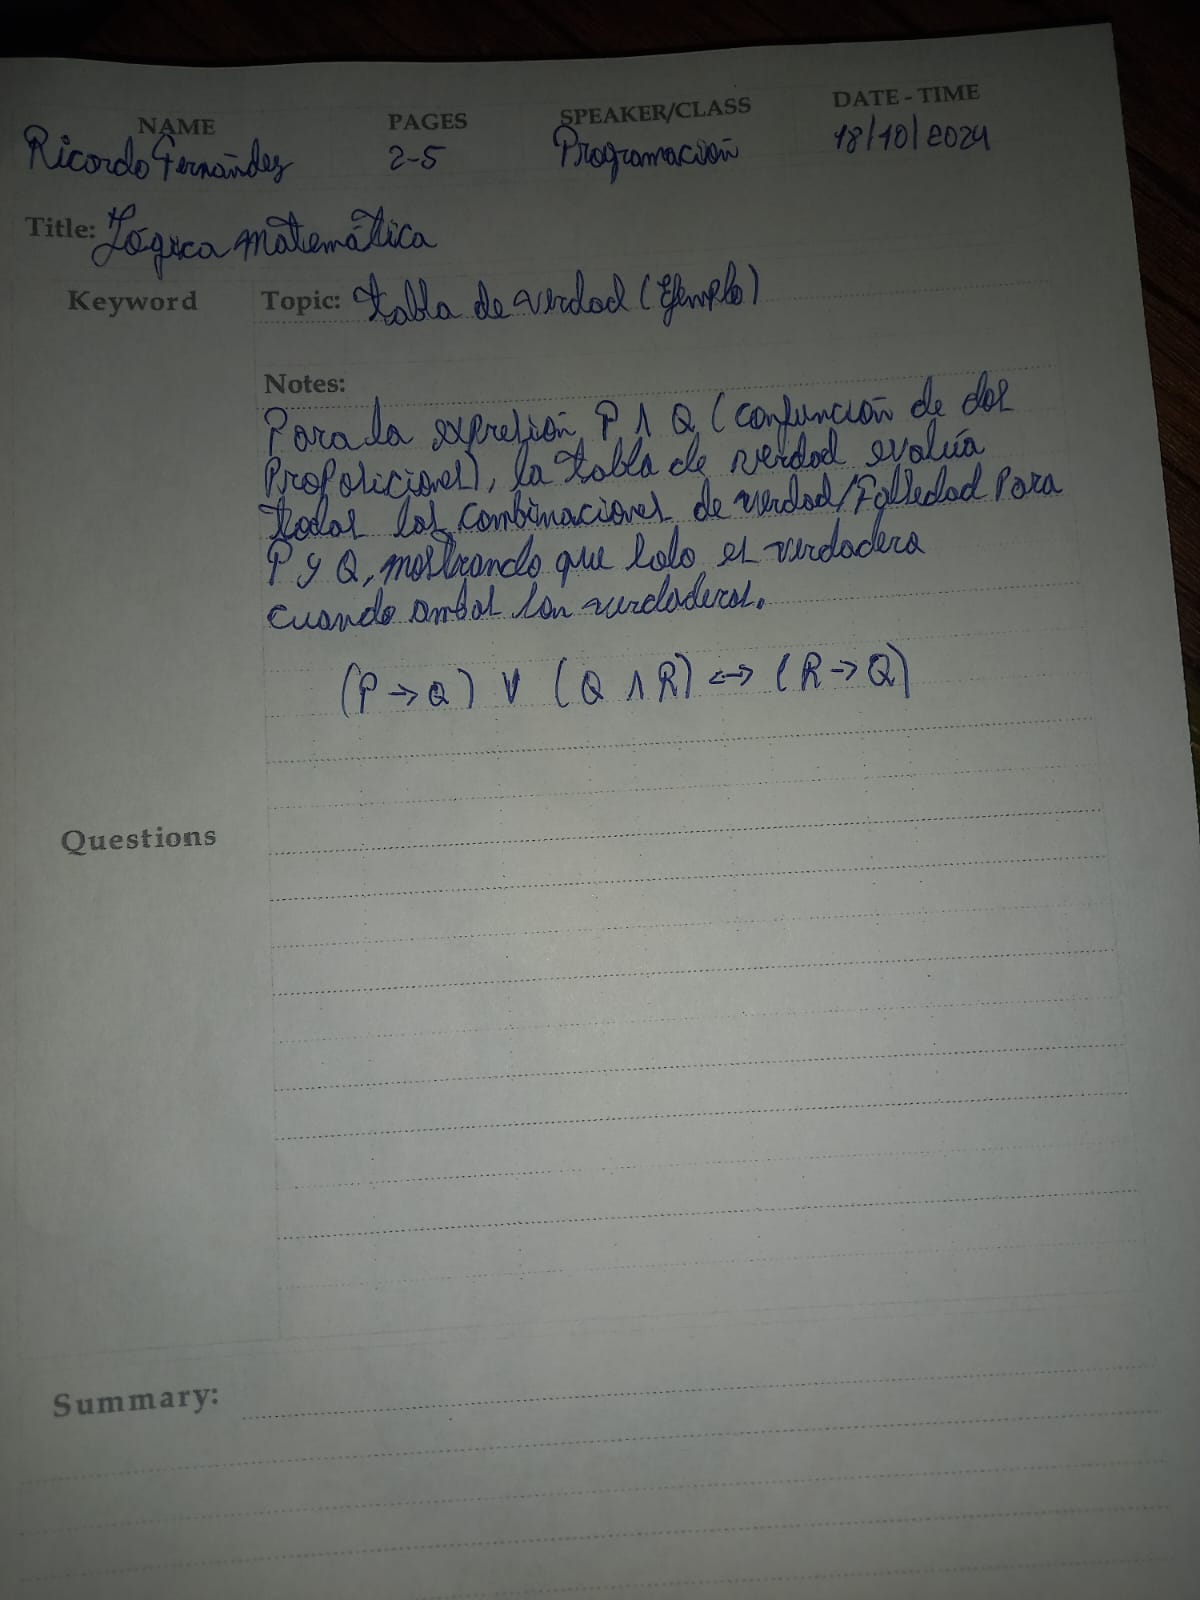 NAME PAGES SPEAKER/CLASS DATE - TIME
Ricardo Fernández 2-5 Programación 18/10/2024
Title: Lógica matemática
Keyword Topic: tabla de verdad (Ejemplo)
Notes:
Para la expresión P ∧ Q (conjunción de dos
proposiciones), la tabla de verdad evalúa
todas las combinaciones de verdad/Falsedad Para
P y Q, mostrando que solo es verdadera
cuando ambas son verdaderas.
(P → Q) ∨ (Q ∧ R) ↔ (R → Q)
Questions
Summary: